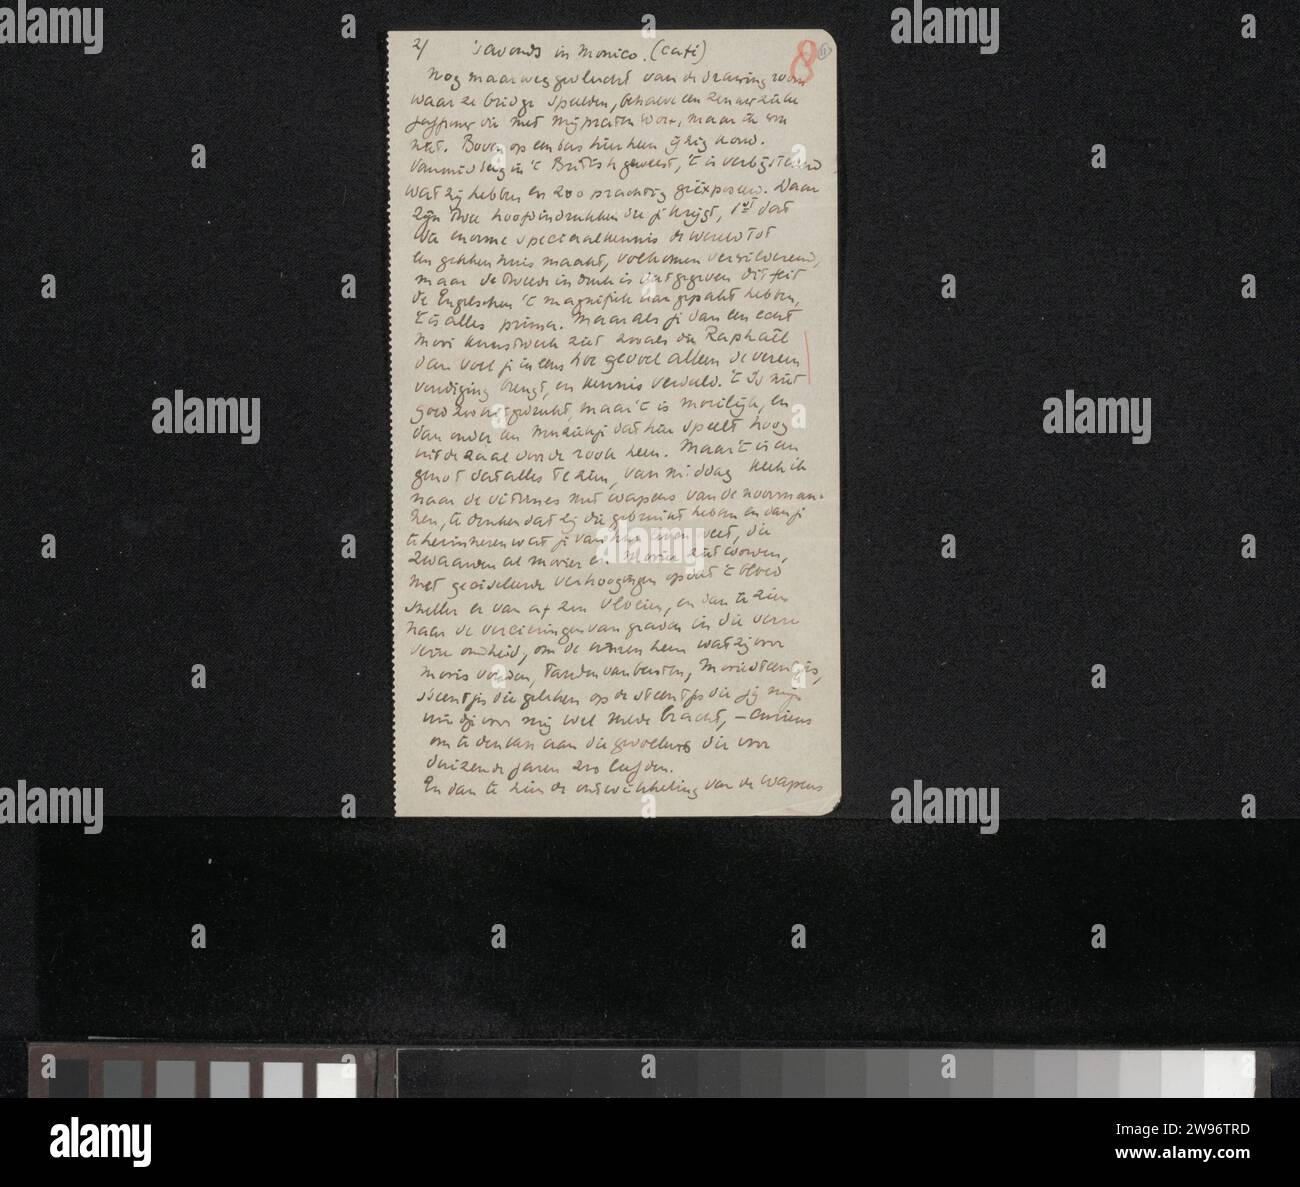 2/ 's avonds in Monico. (café)
8
11
Nog maar weg gevlucht van de drawing room
waar ze bridge speelden, behalve een zenuwzieke
juffrouw die met mij praten wou, maar ik
niet. Boven op een bus hierheen ijzig koud.
Vanmiddag in 't British geweest, 't is verbijsterend
wat zij hebben en zoo prachtig geëxposeerd. Daar
zijn twee hoofdindrukken die je krijgt, 1st dat
die enorme speciaalkennis de wereld tot
een gekkenhuis maakt, volkomen
maar de tweede indruk is dat gegeven dit feit
de Engelschen 't magnifiek aangepakt hebben,
't is alles prima. Maar als je dan een echt
mooi kunstwerk ziet zooals die Raphaël
dan voel je ineens hoe gevoel alleen de vereen
voudiging brengt, en kennis verdeeld. 't Is niet
goed zoo uitgedrukt, maar 't is moeilijk, en
van onder een muziekje dat hier speelt hoog
uit de zaal door de rook heen. Maar 't is een
genot dat alles te zien, van middag keek ik
naar de vitrines met wapens van de noorman-
nen, te denken dat zij die gebruikt hebben en dan je
te herinneren wat je van hun leven weet, die
zwaarden al mooier en mooier ziet worden,
met geciseleerde verhoogingen opdat 't bloed
sneller er van af zou vloeien, en dan te zien
naar de versieringen van graven in die verre
verre oudheid, om de armen heen wat zij voor
moois vonden, tanden van beesten, mooie steentjes,
steentjes die geleken op de steentjes die jij
voor mij wel mede bracht, – curieus
om te denken aan die gevoelens die voor
duizende jaren zoo leefden.
En dan te zien de ontwikkeling van de wapens
alamy
a
alamy
Image ID: 2W96TRD
www.alamy.com